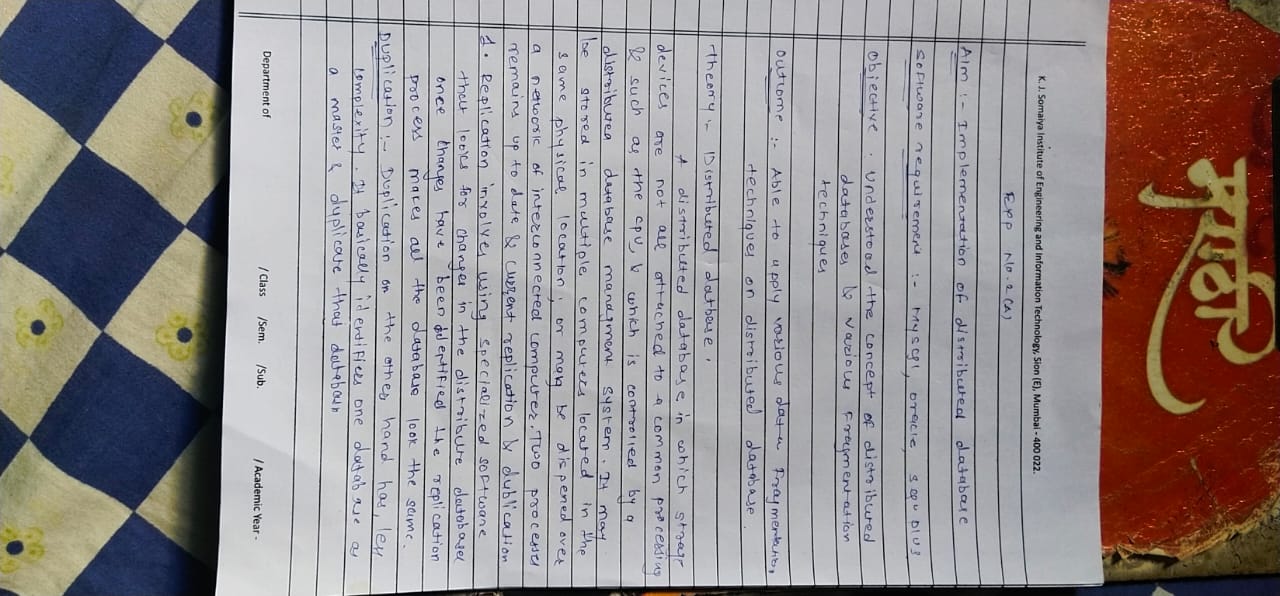 K. J. Somaiya Institute of Engineering and Information Technology, Sion (E), Mumbai - 400 022.
Exp No. 2 (A)
Aim :- Implementation of distributed database
Software requirement :- Mysql, oracle, SQL plus
Objective : understand the concept of distributed
databases & various Fragmentation
techniques
outcome :- Able to apply various data Fragmentation,
techniques on distributed database.
theory :- Distributed datbase.
A distributed database in which strage
devices are not all attached to a common processing
& such as the cpu, & which is controlled by a
distributed database managment system. It may
be stored in multiple computers located in the
same physical location, or may be dispened over
a network of interconnected computer. Two processes
remains up to date & current replication & dublication
1. Replication involves using specialized software
that looks for changes in the distribute database
once changes have been identified the replication
process makes all the database look the same.
Duplication :- Duplication on the other hand has, less
complexity. It basically identifies one database as
a master & dyplicate that database
Department of / Class /Sem. /Sub. / Academic Year -
मराठी